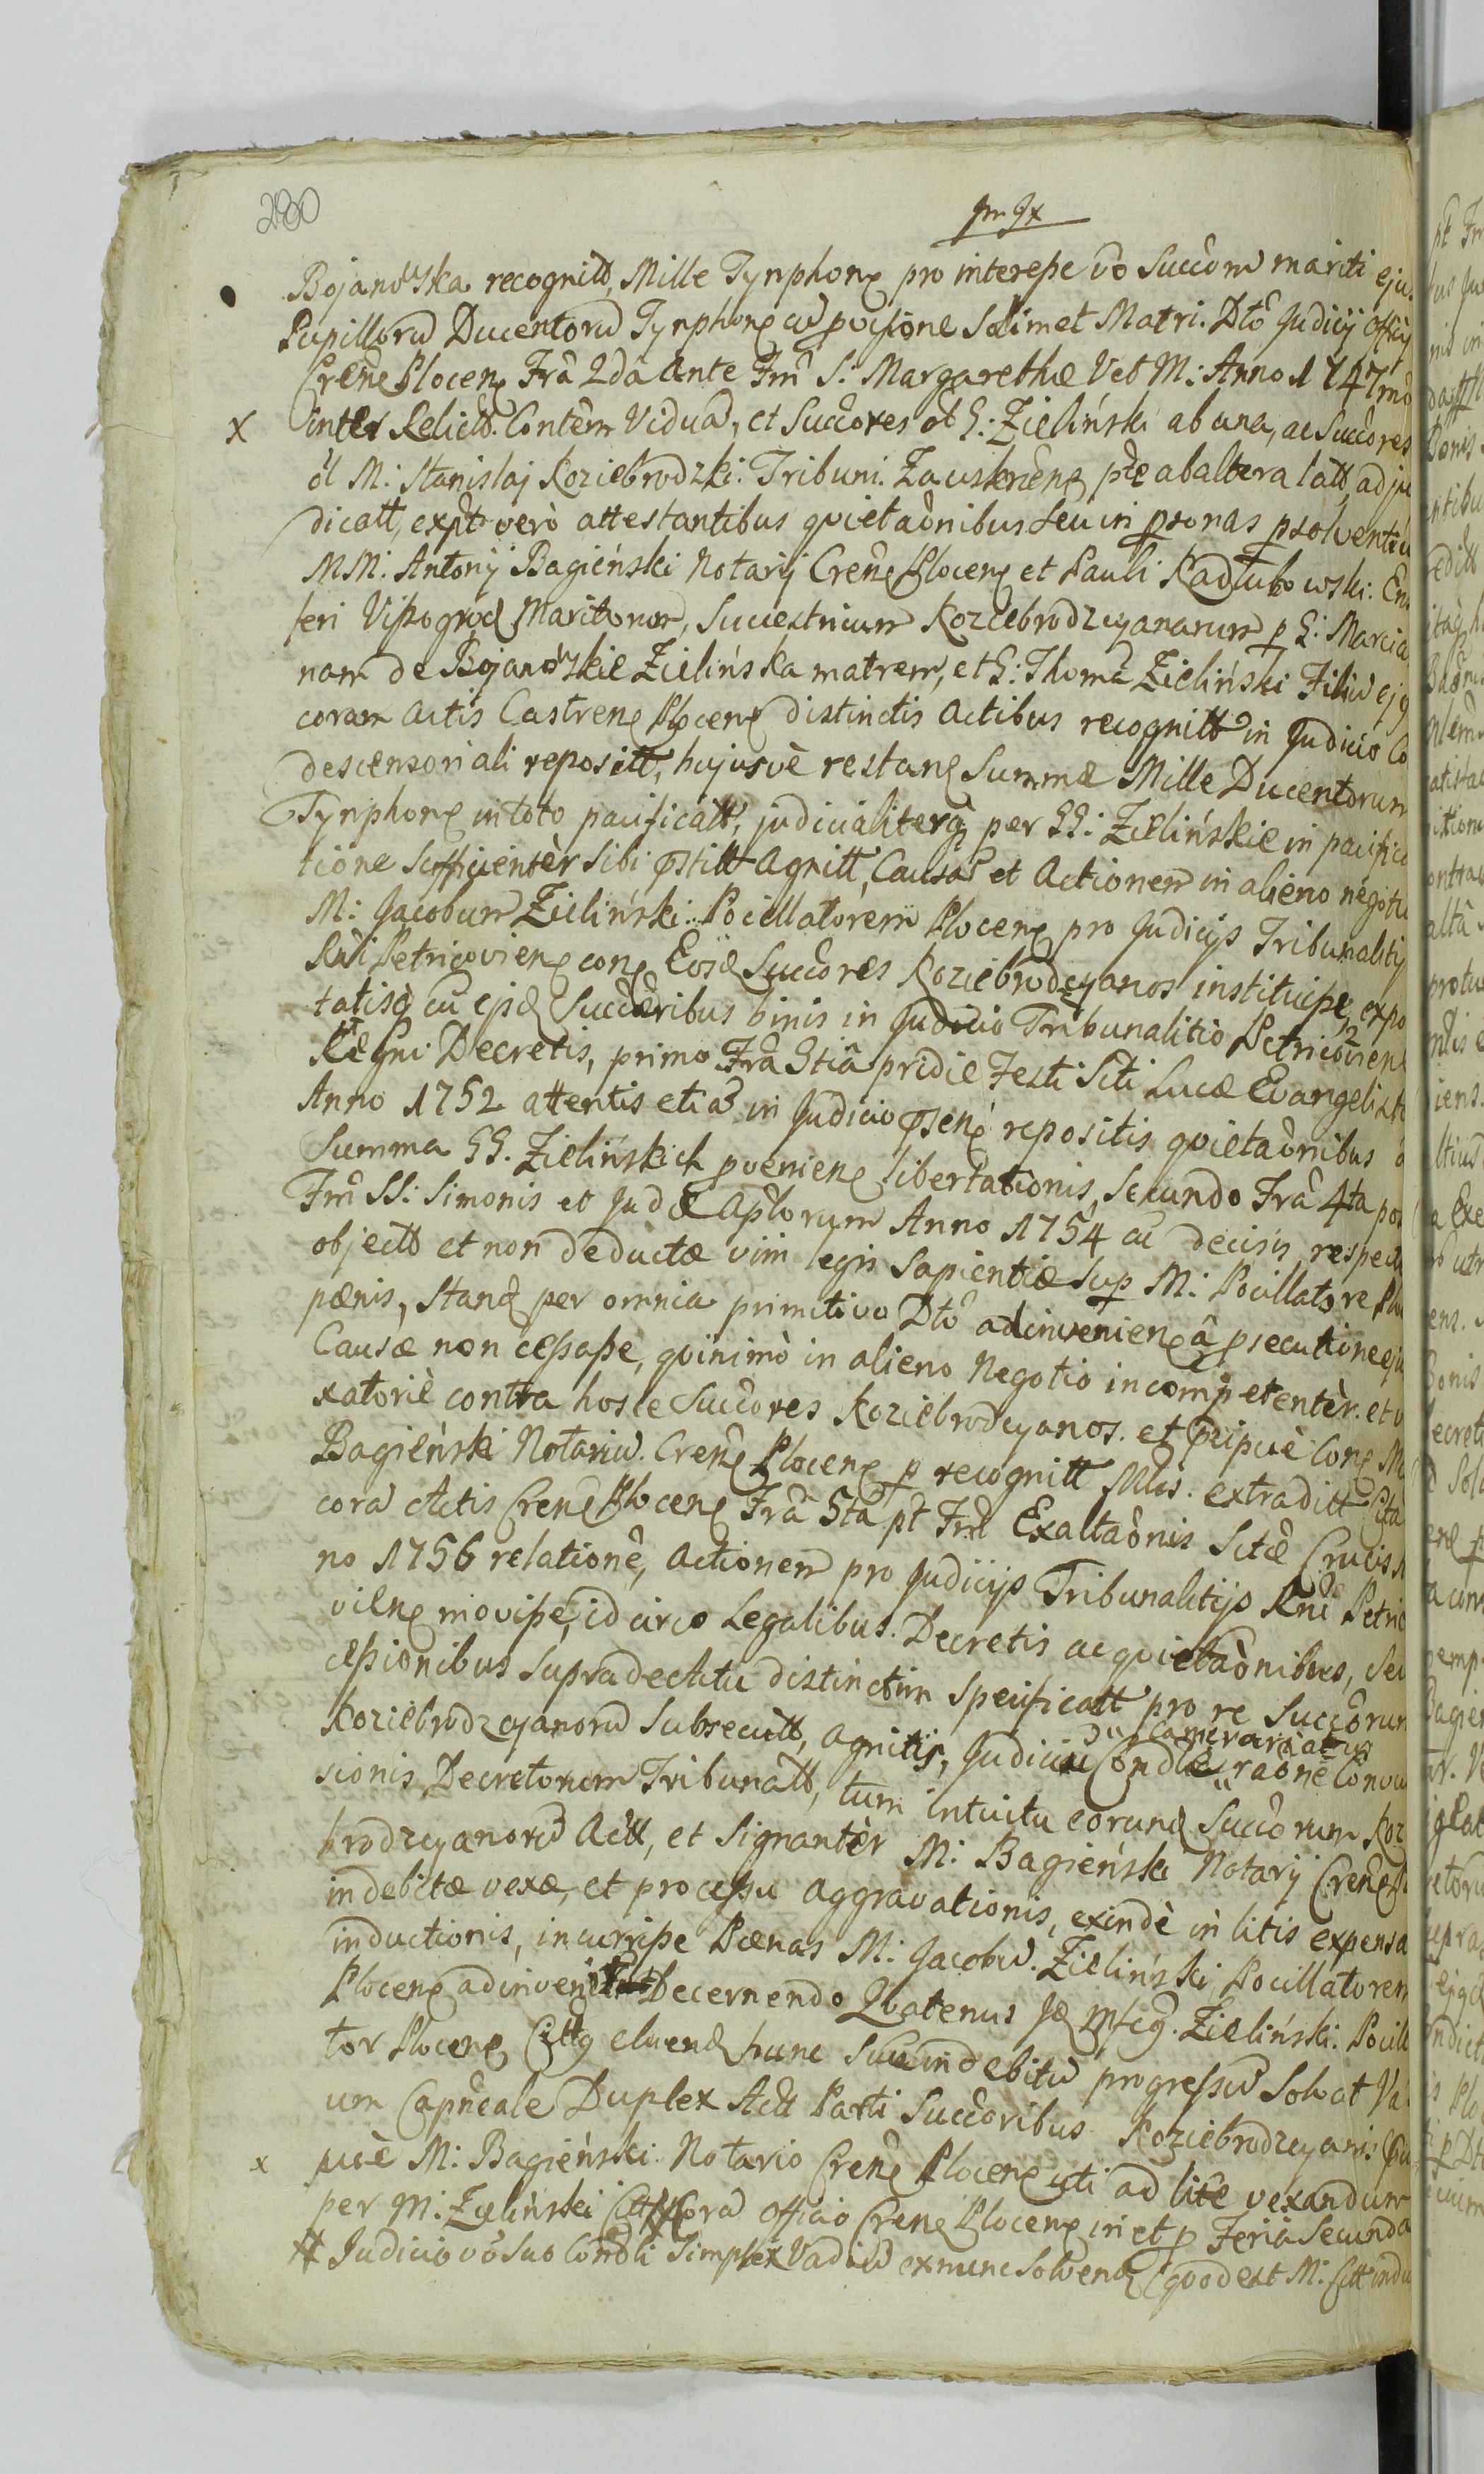 280
Bojanowska recognitt, Mille Tynphonę pro interesse vo Succom mariti ejus
Pupillorū Ducentorū Tynphonę cū provisione Solimet Matri. Dto Judicij Officij
Crenę Plocenę Fra 2da ante Fm S: Margarethæ Vet M: Anno 1747mo
x inter Relictt. Contem Viduā, et Succores ol G: Zieliński ab una, ac Succores
ol M: Stanislaj Koziebrodzki. Tribuni. Zauskrnenę pte ab altera latt, adju
dicatt, expt verò attestantibus quietaonibus seu in psonas psolventiū
MM: Antonij Bagieński Notarij Crenę Plocenę et Pauli Kadłubowski: En
feri Vissogrod Maritorum, Succestricum Koziebrodzcyanarum p G: Marcia
nam de Bojanowskie Zielińska matrem, et G: Thomā Zieliński Filiū ejꝯ
coram Actis Castrenę Plocenę distinctis Actibus recognitt in Judicio Co
descensoriali repositt, hujusvè restanę Summæ Mille Ducentorum
Tynphonę in toto pacificatt, judicialiterq̨ per GG: Zielińskie in pacifica
tione sufficientèr sibi pstitt Agnitt, Causā et Actionem in alieno negotio
M: Jacobum Zieliński: Pocillatorem Plocenę pro Judicijs Tribunalitijs
Rni Petricovienę conę Eosd Succores Koziebrodzcyanos instituisse, expo
tatisq̨ cū ejsd Succoribus binis in Judicio Tribunalitio Petricovienę
Regni Decretis, primo Fra 3tiā pridie Festi Scti Lucæ Evangelistæ
Anno 1752 attentis etiā in Judicio psenę repositis quietaonibus
Summa GG. Zielińskich pvenienę libertationis, Secundo Fra 4ta post
Fm SS: Simonis et Judæ Aplorum Anno 1754 ac decisis respectu
objectt et non deductæ vim legis Sapientiæ sup M: Pocillatore Plo
pœnis, Stanę per omnia primitivo Dto adinvenienę â psecutione ejus
Causæ non cessasse, quinimò in alieno Negotio incompetentèr. et v
xatoriè contra hosce Succores Koziebrodcyanos. et pcipuè conę M
Bagieński Notariū. Crenę Plocenę p recognitt Mtus. extraditt Cita
corā Actis Crenę Plocenę Fra 5ta pt Fm Exaltaonis Sctæ Crucis A
no 1756 relatione, Actionem pro Judicijs Tribunalitijs Rni Petrico
vienę movisse, id circo Legalibus. Decretis ac quietaonibus, seu
cessionibus Supradectitu distinctim specificatt pro re Succorum
Koziebrodzcyanorū Subsecutt, Agnitis, Judiciū Condle " raone Convul
camerariatus
sionis Decretorum Tribunatt, tum intuitu eorund Succorum Koz
brodzcyanorū Actt, et Signantèr M: Bagieński Notarij Crenę
indebitæ vexæ, et processu Aggravationis, exindè in litis expensa
inductionis, incurrisse Pœnas M: Jacobū. Zieliński Pocillatorem
Plocenę adinvenit Decernendo Quatenus Id Mficꝯ. Zieliński: Pocilla
tor Plocenę Cittꝯ eluend hunc suū indebitū progressū Solvat Va
um Capneale Duplex Actt Parti Succoribus Koziebrodzcyanis pci
x puè M: Bagieński Notario Crenę Plocenę uti ad lite vexandum
per M: Zieliński Citt corā Officio Crenę Plocenę in et p Feria Secunda
# Judicio vo suo Condli Simplex Vadiū exnunc Solvend quod est M: Citt indu